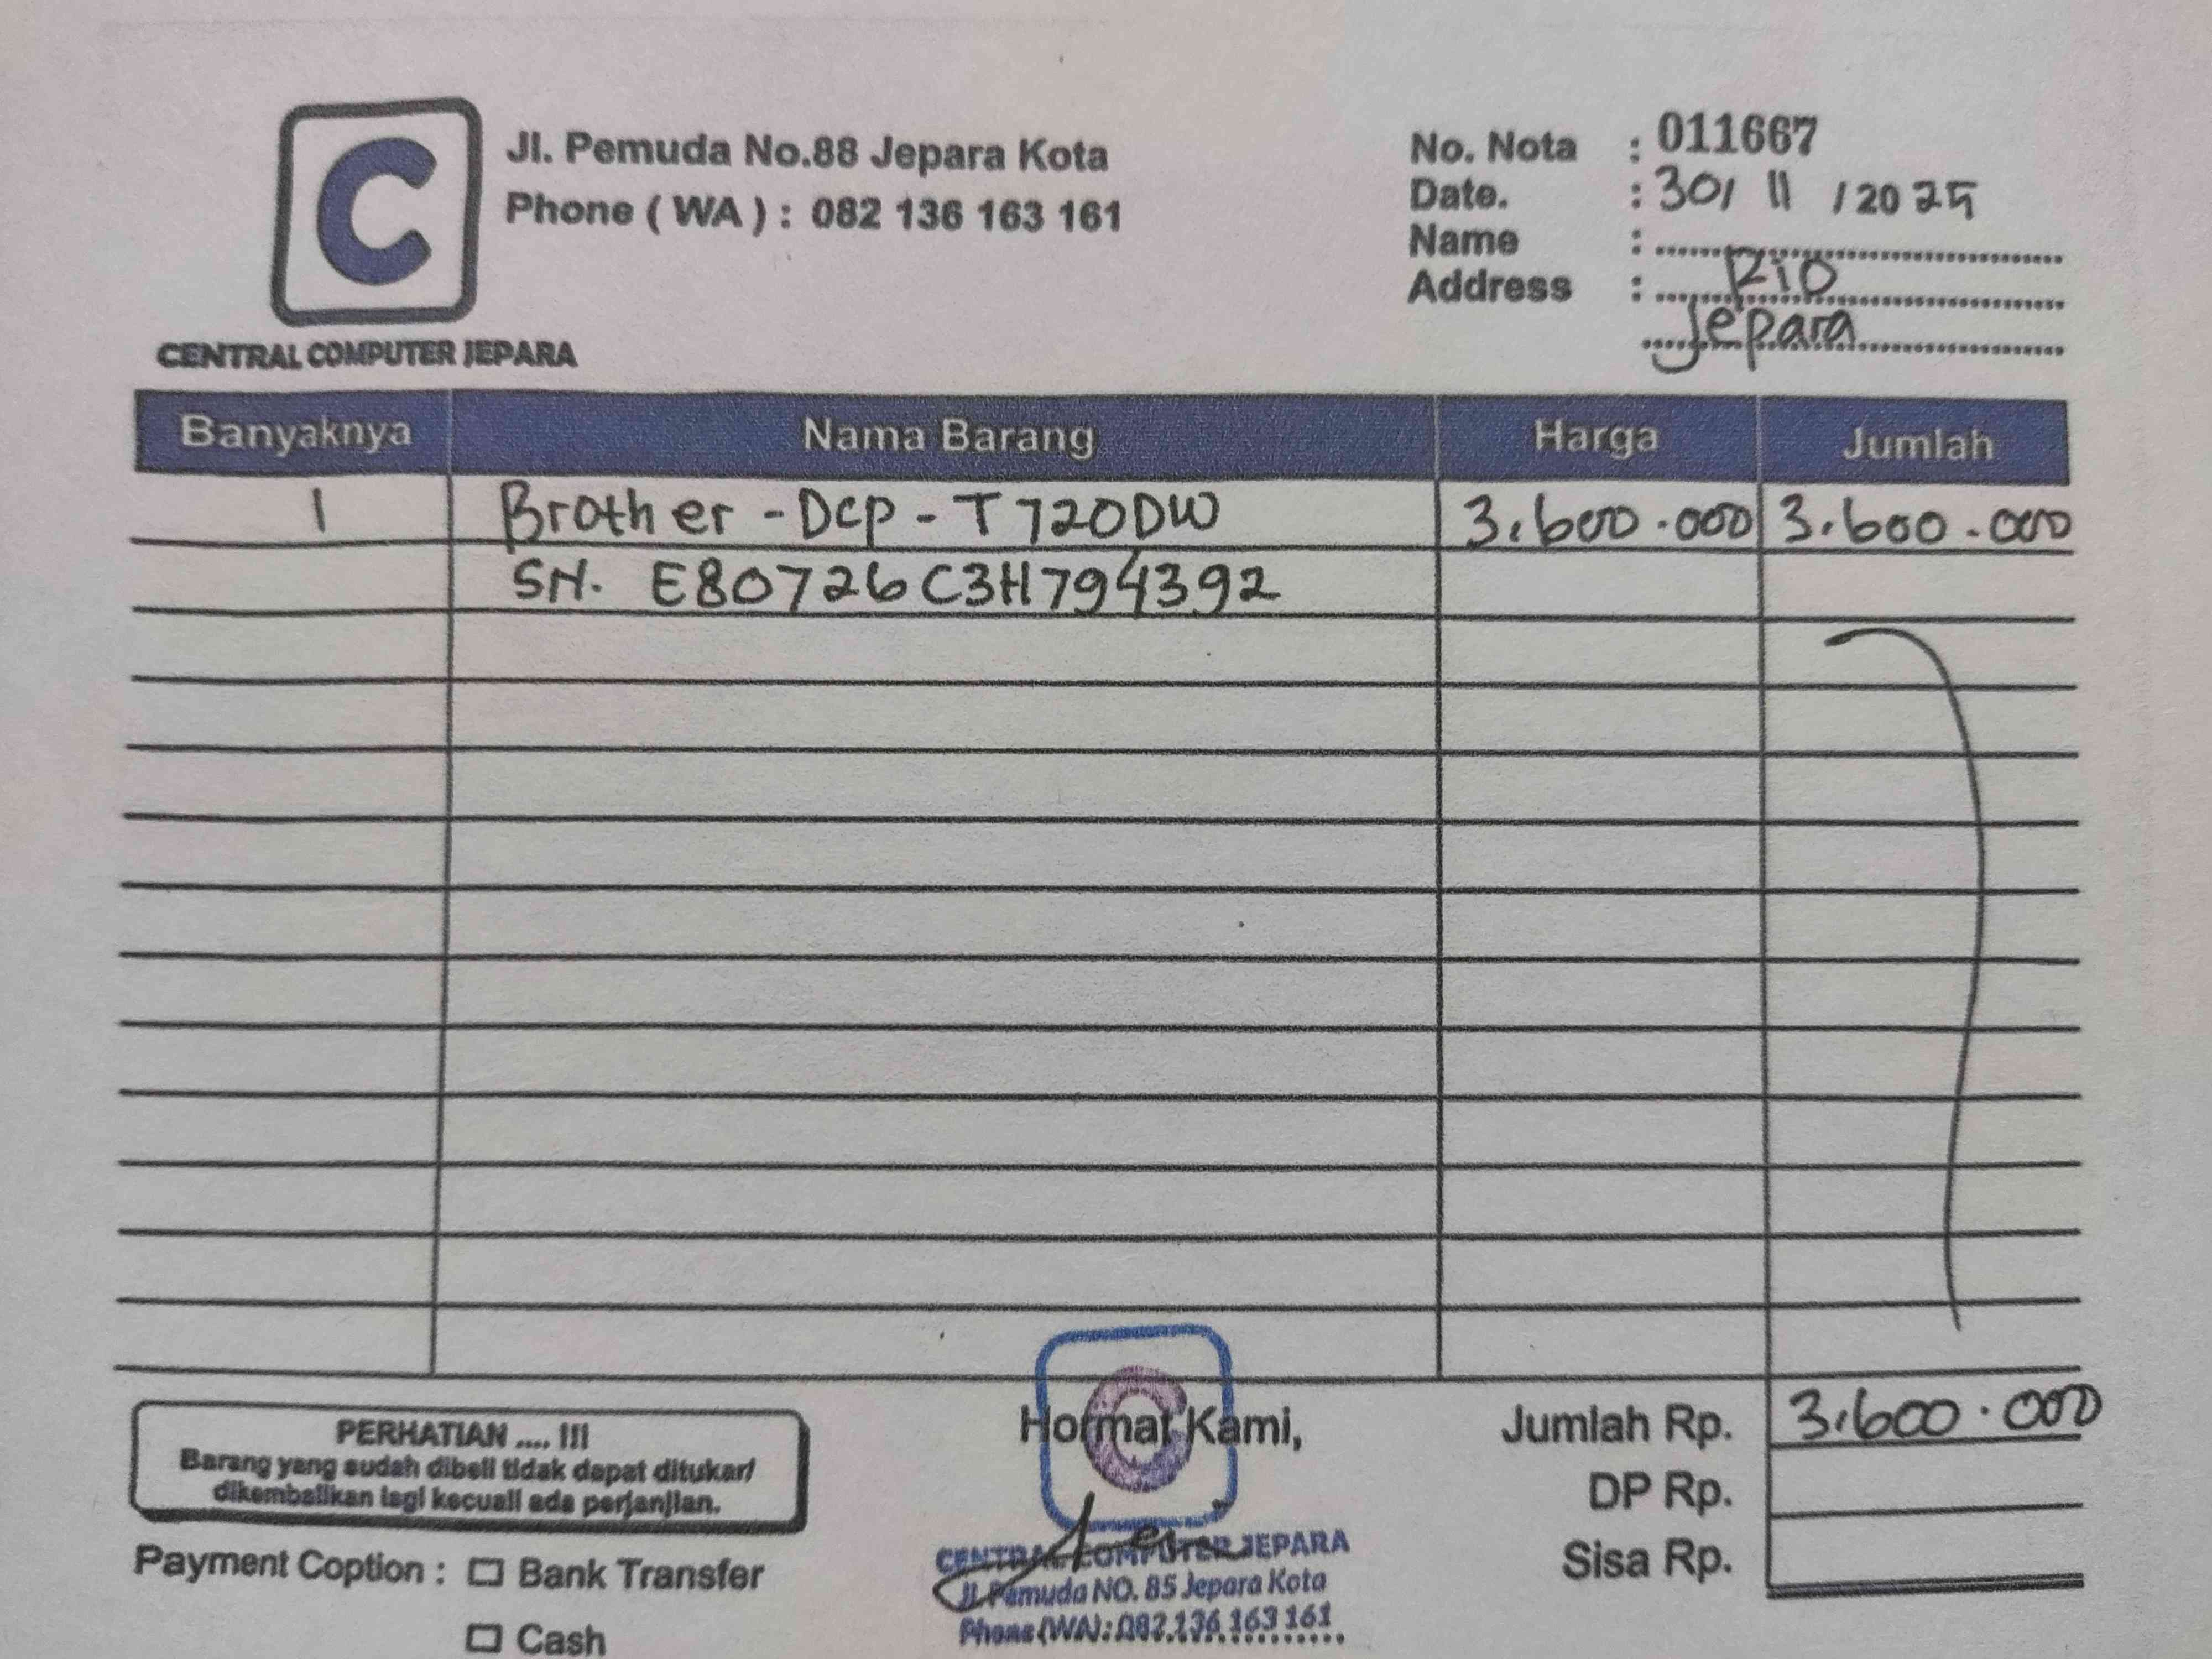 C
CENTRAL COMPUTER JEPARA
Jl. Pemuda No.88 Jepara Kota
Phone ( WA ) : 082 136 163 161
No. Nota : 011667
Date. : 30/ 11 / 20 25
Name :
Address : Rio
Jepara
Banyaknya Nama Barang Harga Jumlah
1 Brother - Dcp - T720DW 3.600.000 3.600.000
SN. E80726C3H794392
PERHATIAN .... !!!
Barang yang sudah dibeli tidak dapat ditukar/
dikembalikan lagi kecuali ada perjanjian.
Payment Coption : Bank Transfer
Cash
Hormat Kami,
C
CENTRAL COMPUTER JEPARA
Jl. Pemuda NO. 85 Jepara Kota
Phone (WA): 082 136 163 161
Jumlah Rp. 3.600.000
DP Rp.
Sisa Rp.